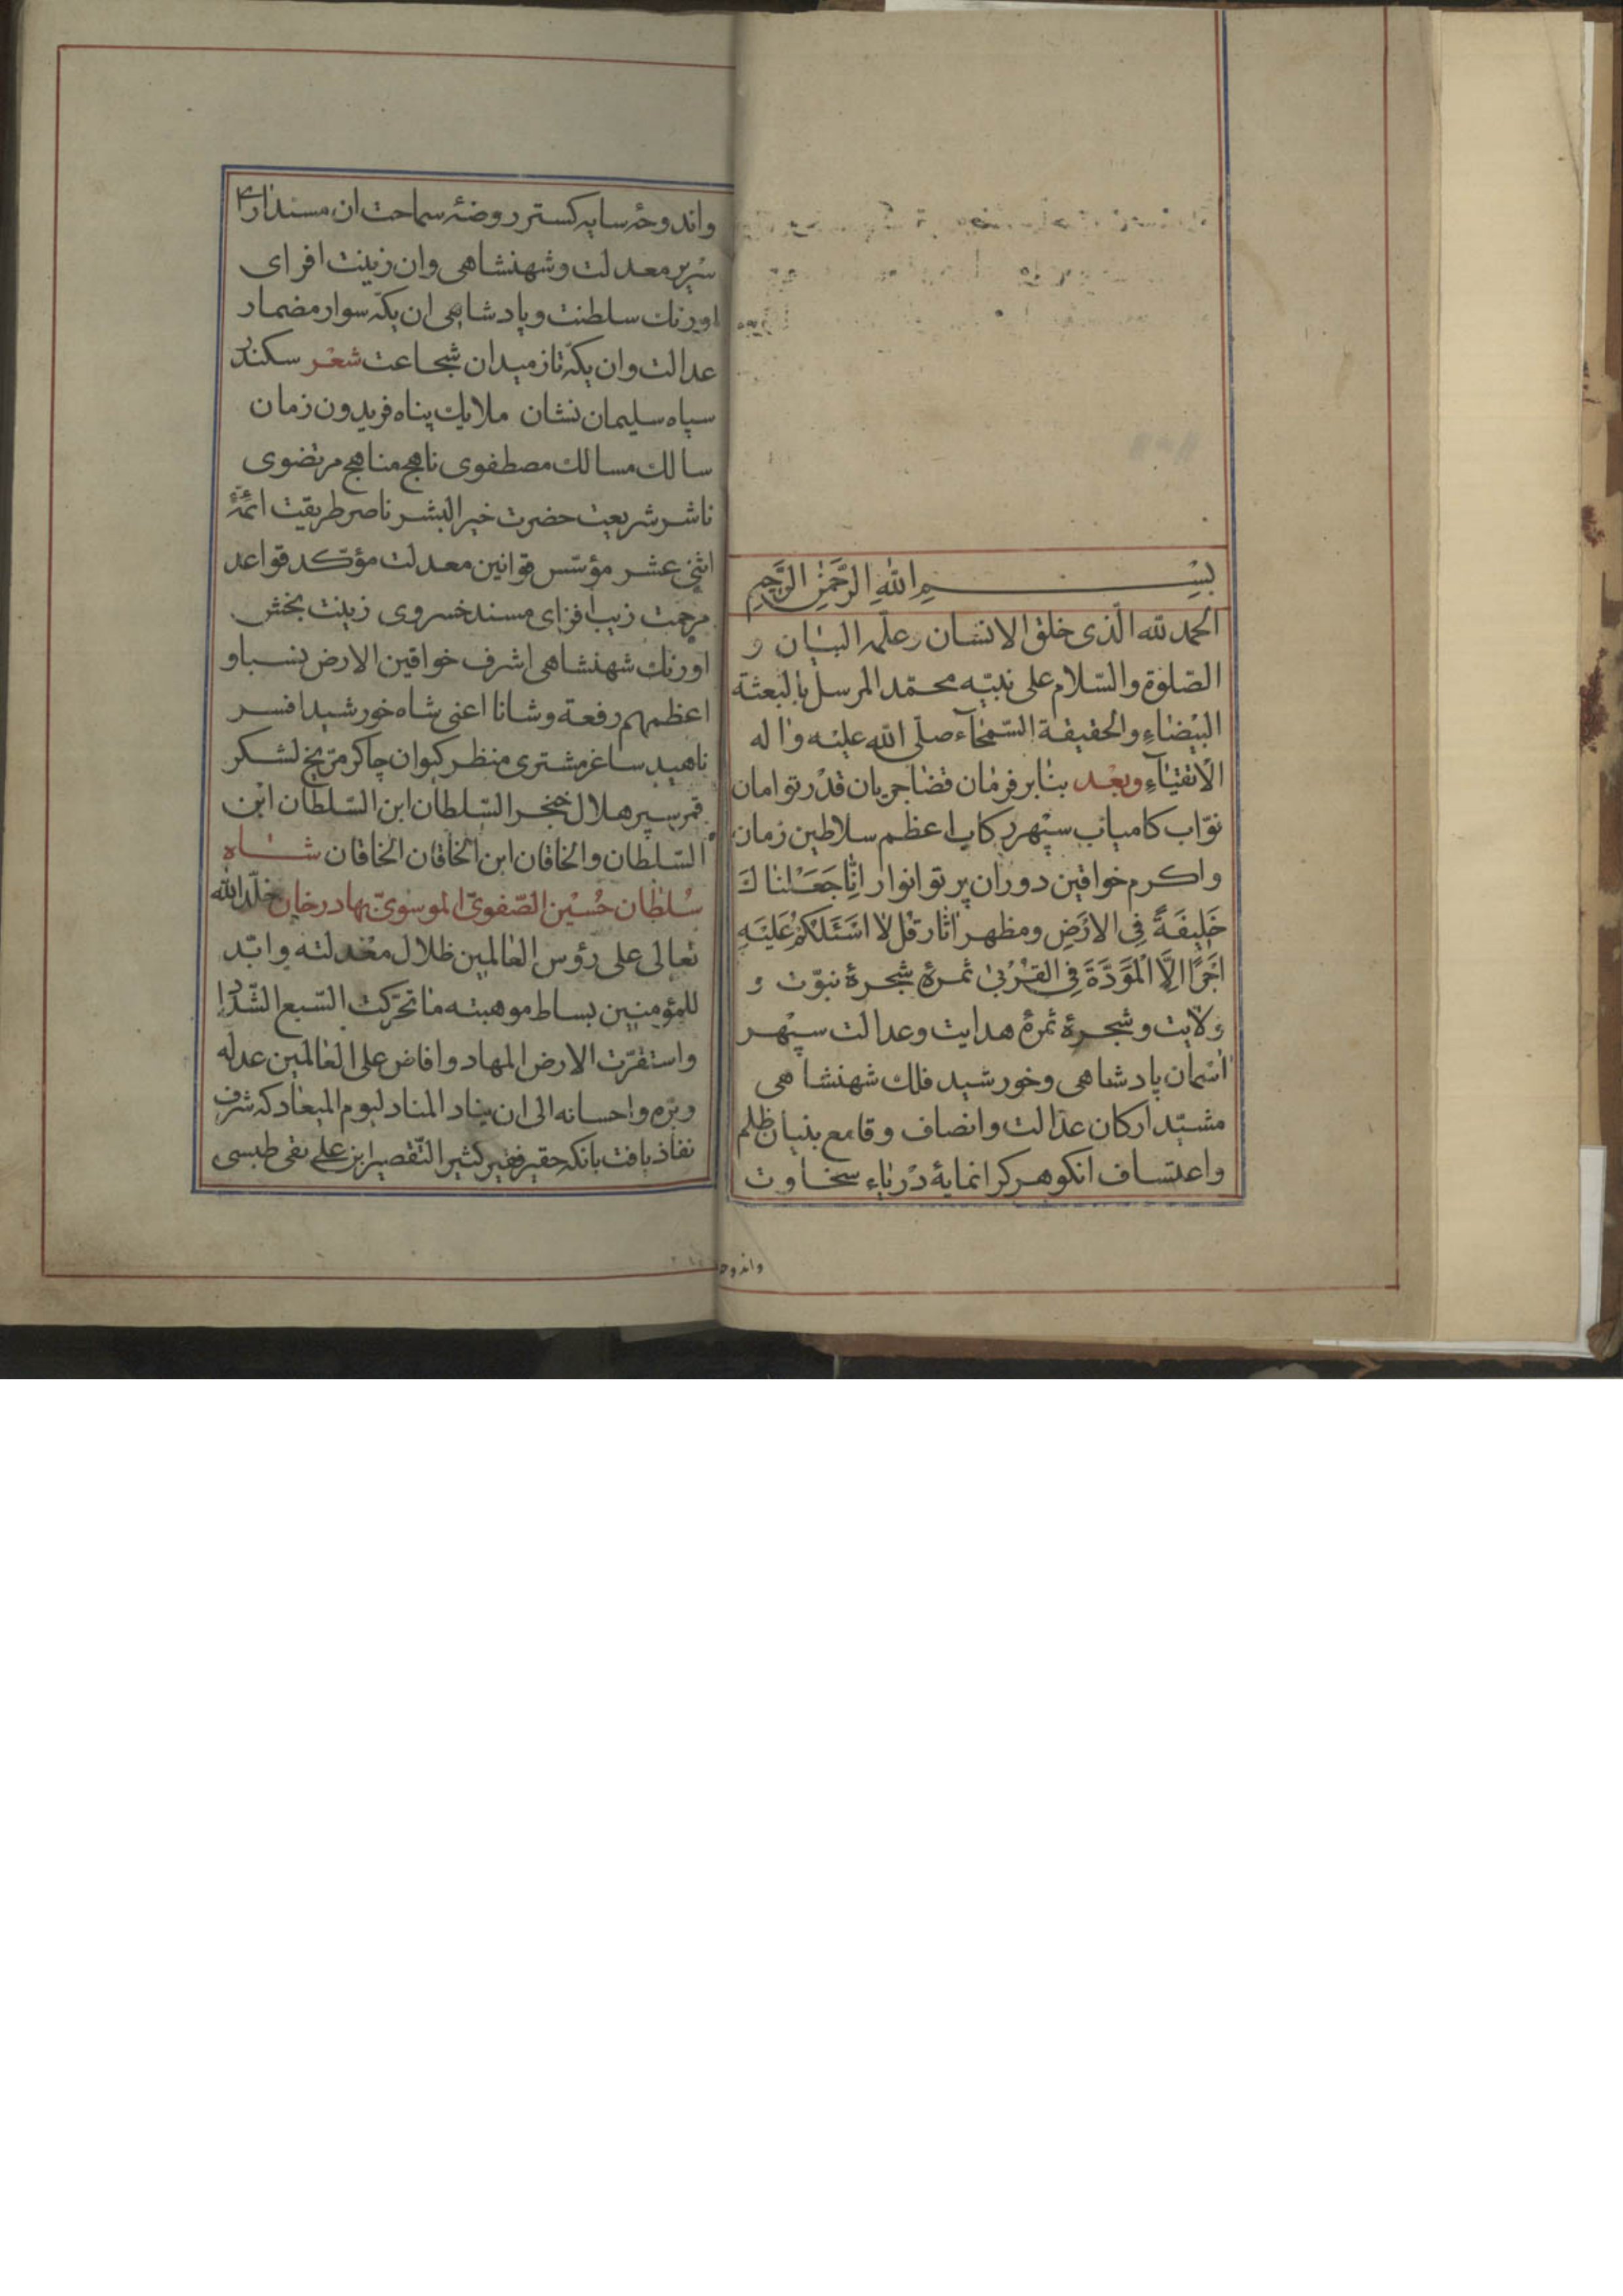 بِسْمِ اللهِ الرَّحْمٰنِ الرَّحِيمِ
الحمد لله الّذى خلق الانسان و علّمه البيان و
الصّلوة والسّلام على نبيّه محمّد المرسل بالبعثة
البيْضاءِ والحقيقة السّمْحاء صلّى الله عليْه واٰله
الاتقياءِ وبعْد بنابر فرمان قضا جريان قدْر توامان
نوّاب كامياب سپهر ركاب اعظم سلاطين زمان
واكرم خواقين دوران پرتو انوار انّا جَعَلْناكَ
خَلِيفَةً فِى الارْضِ ومظهر اثار قل لا اسْئَلكُمْ عَلَيْهِ
اجْرًا الَّا الْمَوَدَّةَ فِى القُرْبىٰ ثمرهٔ شجرهٔ نبوّت و
ولايت وشجرهٔ ثمرهٔ هدايت وعدالت سپهر
اسمان پادشاهى وخورشيد فلك شهنشاهى
مشيّد اركان عدالت وانصاف وقامع بنيان ظلم
واعتساف انكوهر كرانمايهٔ درياء سخاوت
واندوحهٔ
واندوحهٔ سايه كستر روضهٔ سماحت ان مسنداراى
سرير معدلت وشهنشاهى وان زينت افراى
اورنك سلطنت وپادشاهى ان يكّه سوار مضمار
عدالت وان يكّه تاز ميدان شجاعت شعْر سكندر
سپاه سليمان نشان ملايك پناه فريدون زمان
سالك مسالك مصطفوى ناهج مناهج مرتضوى
ناشر شريعت حضرت خير البشر ناصر طريقت ائمّهٔ
اثنى عشر مؤسّس قوانين معدلت مؤكّد قواعد
مرحمت زيب افزاى مسند خسروى زينت بخش
اورنك شهنشاهى اشرف خواقين الارض نسبا و
اعظمهم رفعة وشانا اعنى شاه خورشيد افسر
ناهيد ساغر مشترى منظر كيوان چاكر مرّيخ لشكر
قمر سپر هلال خنجر السّلطان ابن السّلطان ابْن
السّلطان والخاقان ابن الخاقان الخاقان شاه
سُلطان حُسيْن الصّفوىّ الموسوىّ بهادر خان خلّد الله
تعالى على رؤس العالمين ظلال معْدلته وابّد
للمؤمنين بساط موهبته ما تحرّكت السّبع الشّداد
واستقرّت الارض المهاد وافاض على العالمين عدله
وبرّه واحسانه الى ان يناد المناد ليوم الميعاد كه شرف
نفاذ يافت بانكه حقير فقير كثير التّقصير ابن على نقى طبسى